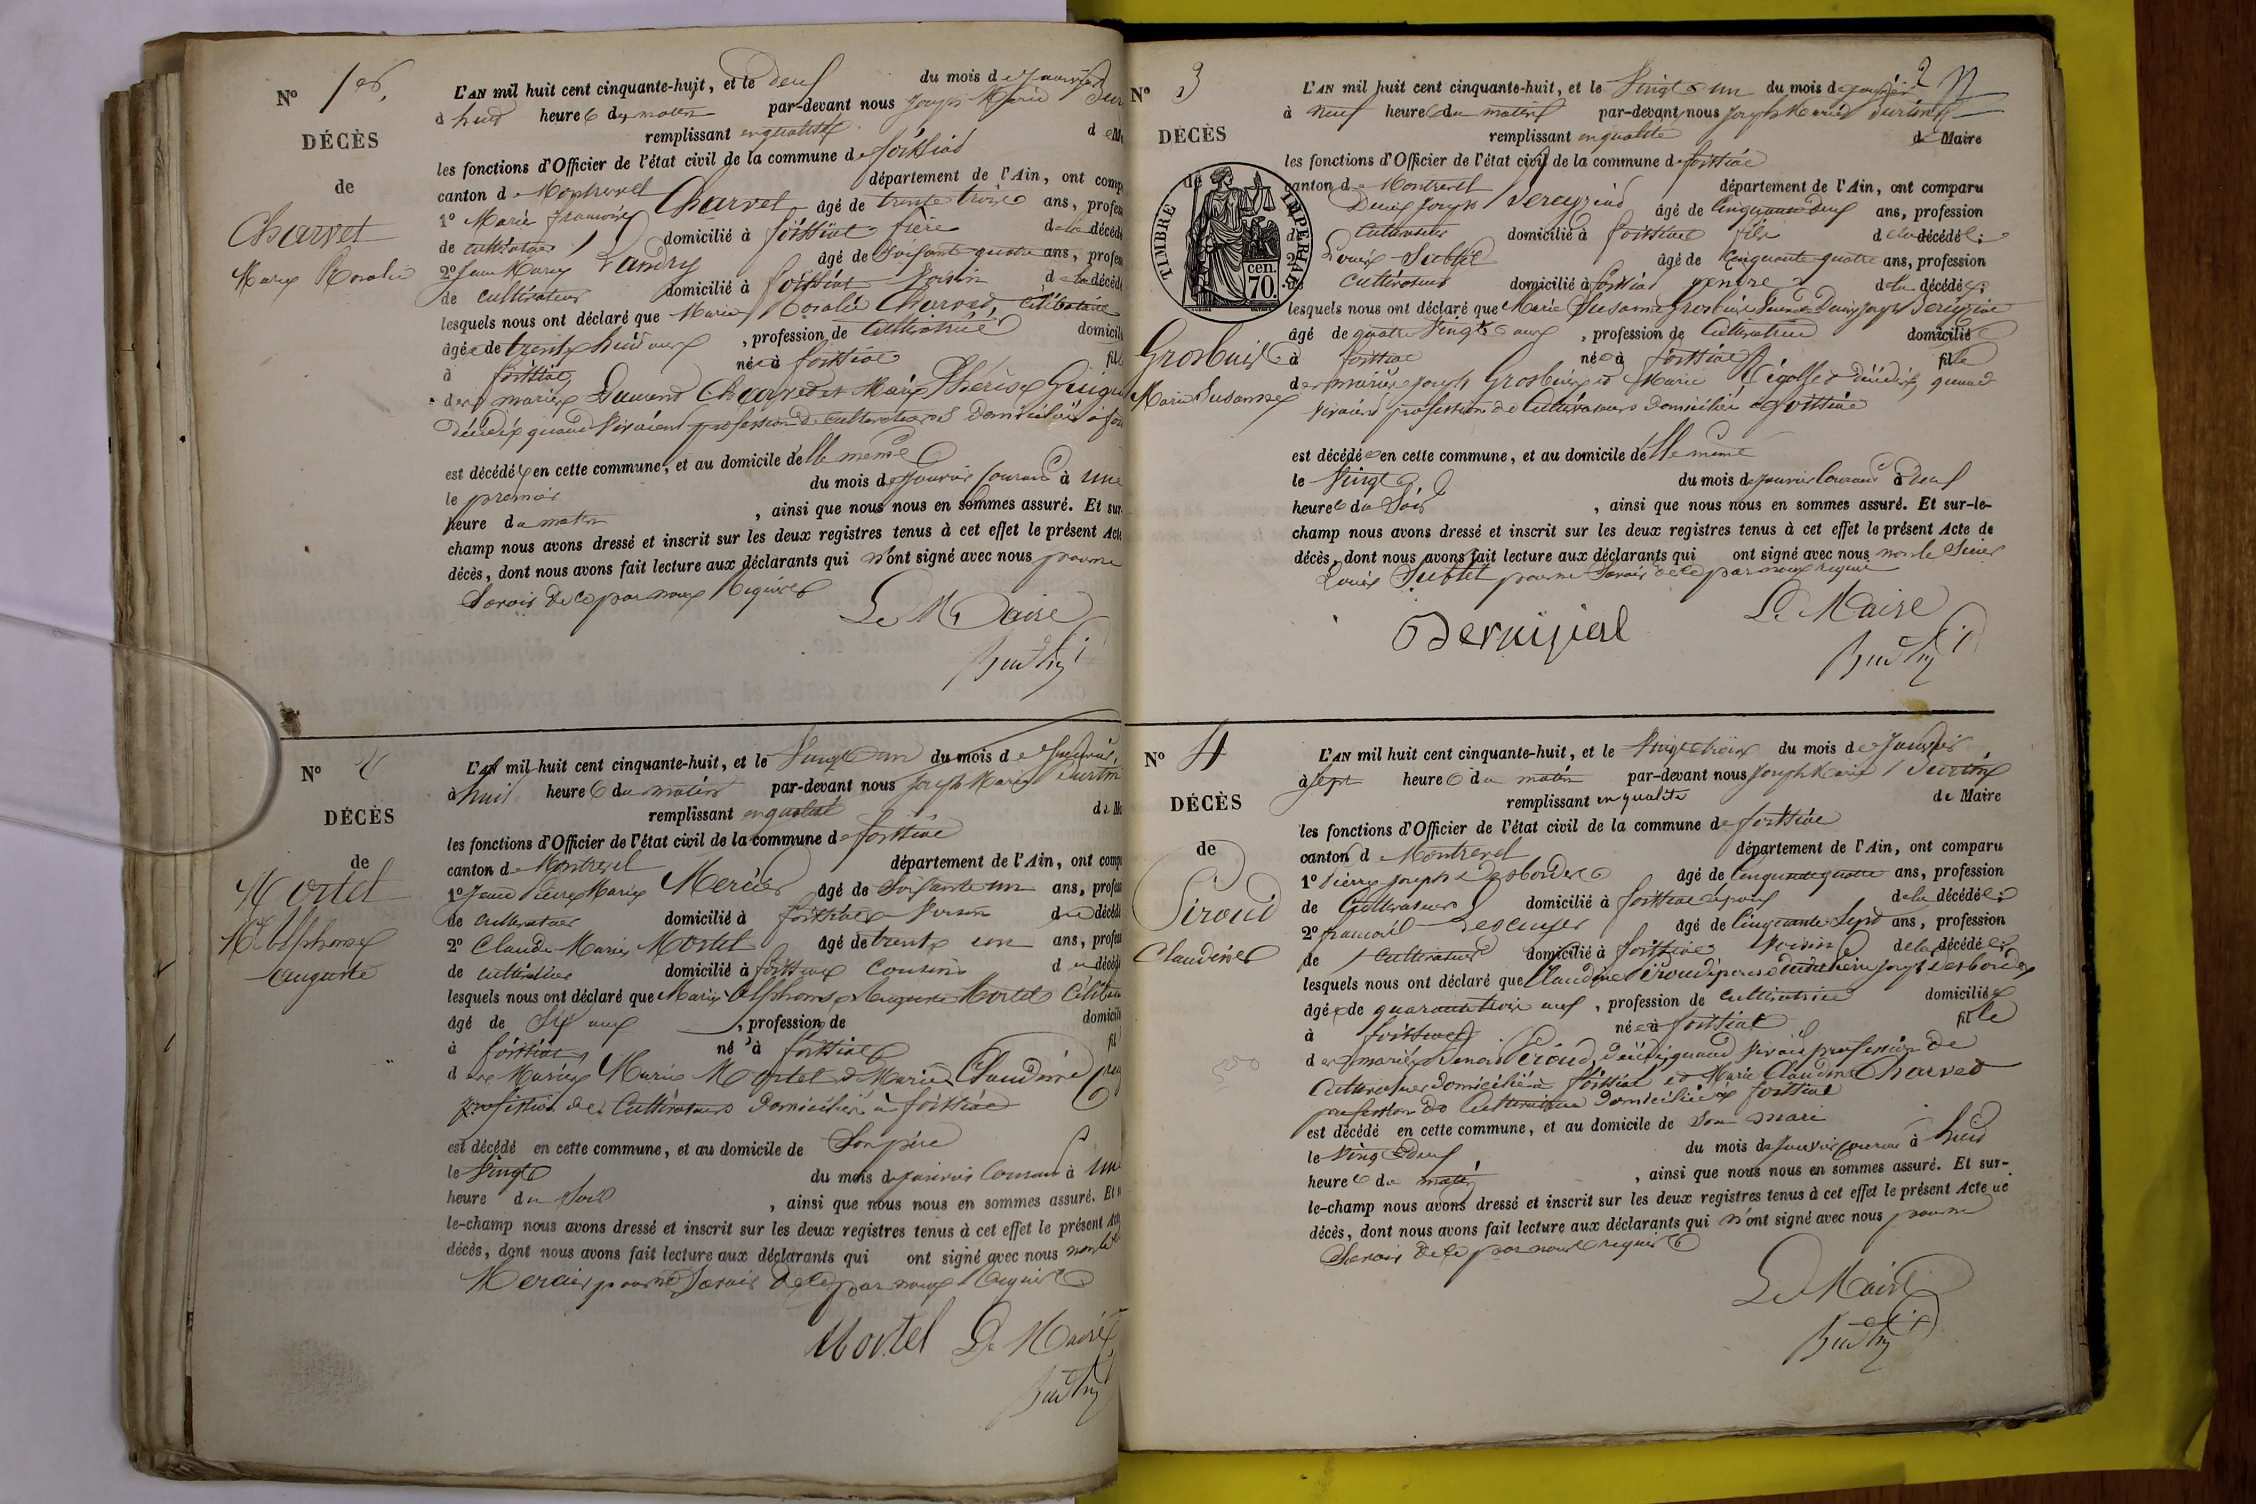 N° 1er.
DÉCÈS
de
Charvet
Marie Rosalie
L'AN mil huit cent cinquante-huit, et le deux du mois de janvier
à huit heures du matin par-devant nous Joseph Marie
remplissant en qualité de
les fonctions d'Officier de l'état civil de la commune de foissiat
canton de Montrevel département de l'Ain, ont comp
1° Marie françois Charvet âgé de trente trois ans, profess
de cultivateur domicilié à foissiat frère de la décédé
2° Jean Marie Pandry âgé de soixante quatre ans, profess
de cultivateur domicilié à foissiat voisin de la décédé
lesquels nous ont déclaré que Marie Rosalie Charvet, célibataire
âgée de trente huit ans, profession de cultivatrice domicili
à foissiat née à foissiat fil
des mariés Laurent Charvet et Marie Thérèse
décédés quand vivaient profession de cultivateurs domiciliés à
est décédée en cette commune, et au domicile d'elle même
le premier du mois de janvier courant à une
heure du matin, ainsi que nous nous en sommes assuré. Et sur
champ nous avons dressé et inscrit sur les deux registres tenus à cet effet le présent Acte
décès, dont nous avons fait lecture aux déclarants qui n'ont signé avec nous pour ne
savoir de ce par nous requis
Le Maire
N° 2
DÉCÈS
de
Mortel
Me Alphonse
auguste
L'AN mil huit cent cinquante-huit, et le vingt un du mois de janvier,
à huit heures du matin par-devant nous Joseph Marie
remplissant en qualité de
les fonctions d'Officier de l'état civil de la commune de foissiat
canton de Montrevel département de l'Ain, ont comp
1° Jean Pierre Marie Mercier âgé de soixante un ans, profess
de cultivateur domicilié à foissiat voisin du décédé
2° Claude Marie Mortel âgé de trente un ans, profess
de cultivateur domicilié à foissiat cousin du décédé
lesquels nous ont déclaré que Marie Alphonse Auguste Mortel
âgé de six ans, profession de domicili
à foissiat né à foissiat fil
des mariés Marie Mortel et Marie Claudine
profession de cultivateurs domiciliés à foissiat
est décédé en cette commune, et au domicile de son père
le vingt du mois de janvier courant à une
heure du soir, ainsi que nous nous en sommes assuré. Et
le-champ nous avons dressé et inscrit sur les deux registres tenus à cet effet le présent
décès, dont nous avons fait lecture aux déclarants qui ont signé avec nous non le
Mercier pour ne savoir de ce par nous requis
Mortel Le Maire
2
N° 3
DÉCÈS
de
TIMBRE IMPÉRIAL
70 cen.
Grosbuis
Marie Susanne
L'AN mil huit cent cinquante-huit, et le vingt un du mois de janvier
à neuf heures du matin par-devant nous Joseph Marie
remplissant en qualité de Maire
les fonctions d'Officier de l'état civil de la commune de foissiat
canton de Montrevel département de l'Ain, ont comparu
1° Denis Joseph âgé de cinquante deux ans, profession
de cultivateur domicilié à foissiat fils de la décédée;
2° Louis Subtil âgé de cinquante quatre ans, profession
de cultivateur domicilié à foissiat gendre de la décédée;
lesquels nous ont déclaré que Marie Susanne
âgé de quatre vingts ans, profession de cultivatrice domiciliée
à foissiat née à foissiat fille
des mariés Joseph et Marie décédés quand
vivaient profession de cultivateurs domiciliés à foissiat
est décédée en cette commune, et au domicile d'elle même
le vingt du mois de janvier courant à deux
heures du soir, ainsi que nous nous en sommes assuré. Et sur-le-
champ nous avons dressé et inscrit sur les deux registres tenus à cet effet le présent Acte de
décès, dont nous avons fait lecture aux déclarants qui ont signé avec nous non le sieur
Louis Subtil pour ne savoir de ce par nous requis
Le Maire
N° 4
DÉCÈS
de
Piroud
Claudine
L'AN mil huit cent cinquante-huit, et le vingt trois du mois de janvier
à sept heures du matin par-devant nous Joseph Marie
remplissant en qualité de Maire
les fonctions d'Officier de l'état civil de la commune de foissiat
canton d Montrevel département de l'Ain, ont comparu
1° Pierre Joseph Desbordes âgé de cinquante quatre ans, profession
de cultivateur domicilié à foissiat époux de la décédée;
2° françois Lescuyer âgé de cinquante sept ans, profession
de cultivateur domicilié à foissiat voisin de la décédée
lesquels nous ont déclaré que Claudine Piroud épouse dudit Pierre Joseph Desbordes
âgée de quarante trois ans, profession de cultivatrice domiciliée
à foissiat née à foissiat fille
des mariés Piroud, décédé quand vivait profession de
cultivateur domicilié à foissiat et Marie Claudine Charvet
profession de cultivatrice domiciliée à foissiat
est décédé en cette commune, et au domicile de son mari
le vingt deux du mois de janvier courant à huit
heures du matin, ainsi que nous nous en sommes assuré. Et sur-
le-champ nous avons dressé et inscrit sur les deux registres tenus à cet effet le présent Acte de
décès, dont nous avons fait lecture aux déclarants qui n'ont signé avec nous pour ne
savoir de ce par nous requis
Le Maire